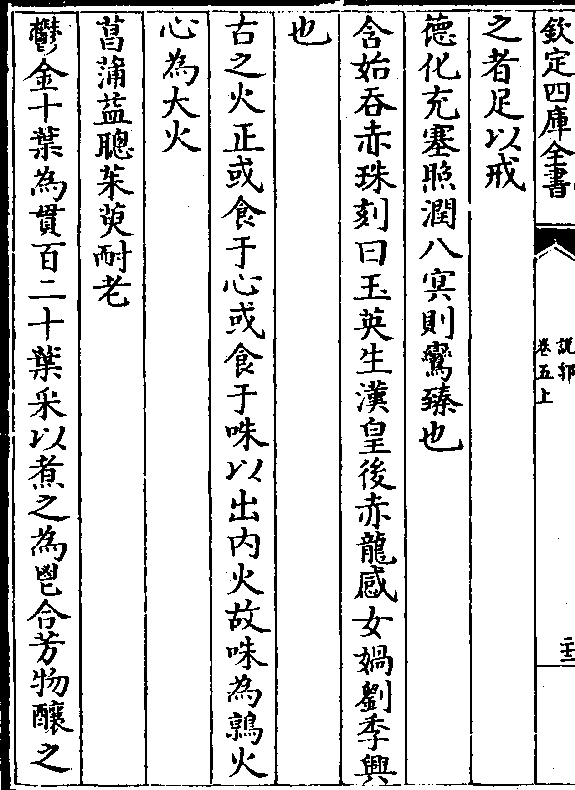 欽定四庫全書
說郛
卷五上
二十三
之者足以戒
德化充塞照潤八冥則鸞臻也
含始吞赤珠刻曰玉英生漢皇後赤龍感女媧劉季興
也
古之火正或食于心或食于咮以出内火故咮為鶉火
心為大火
菖蒲益聰茱萸耐老
鬱金十葉為貫百二十葉采以煮之為鬯合芳物釀之